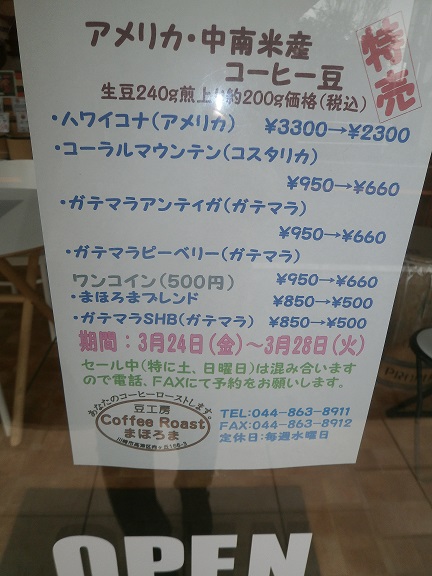 アメリカ・中南米産
コーヒー豆
特売
生豆240g煎上り約200g価格(税込)
・ハワイコナ(アメリカ) ¥3300→¥2300
・コーラルマウンテン(コスタリカ)
¥950→¥660
・ガテマラアンティガ(ガテマラ)
¥950→¥660
・ガテマラピーベリー(ガテマラ)
¥950→¥660
ワンコイン(500円)
・まほろまブレンド ¥850→¥500
・ガテマラSHB(ガテマラ) ¥850→¥500
期間:3月24日(金)~3月28日(火)
セール中(特に土、日曜日)は混み合います
ので電話、FAXにて予約をお願いします。
あなたのコーヒーローストします。
豆工房
Coffee Roast
まほろま
TEL:044-863-8911
FAX:044-863-8912
定休日:毎週水曜日
OPEN